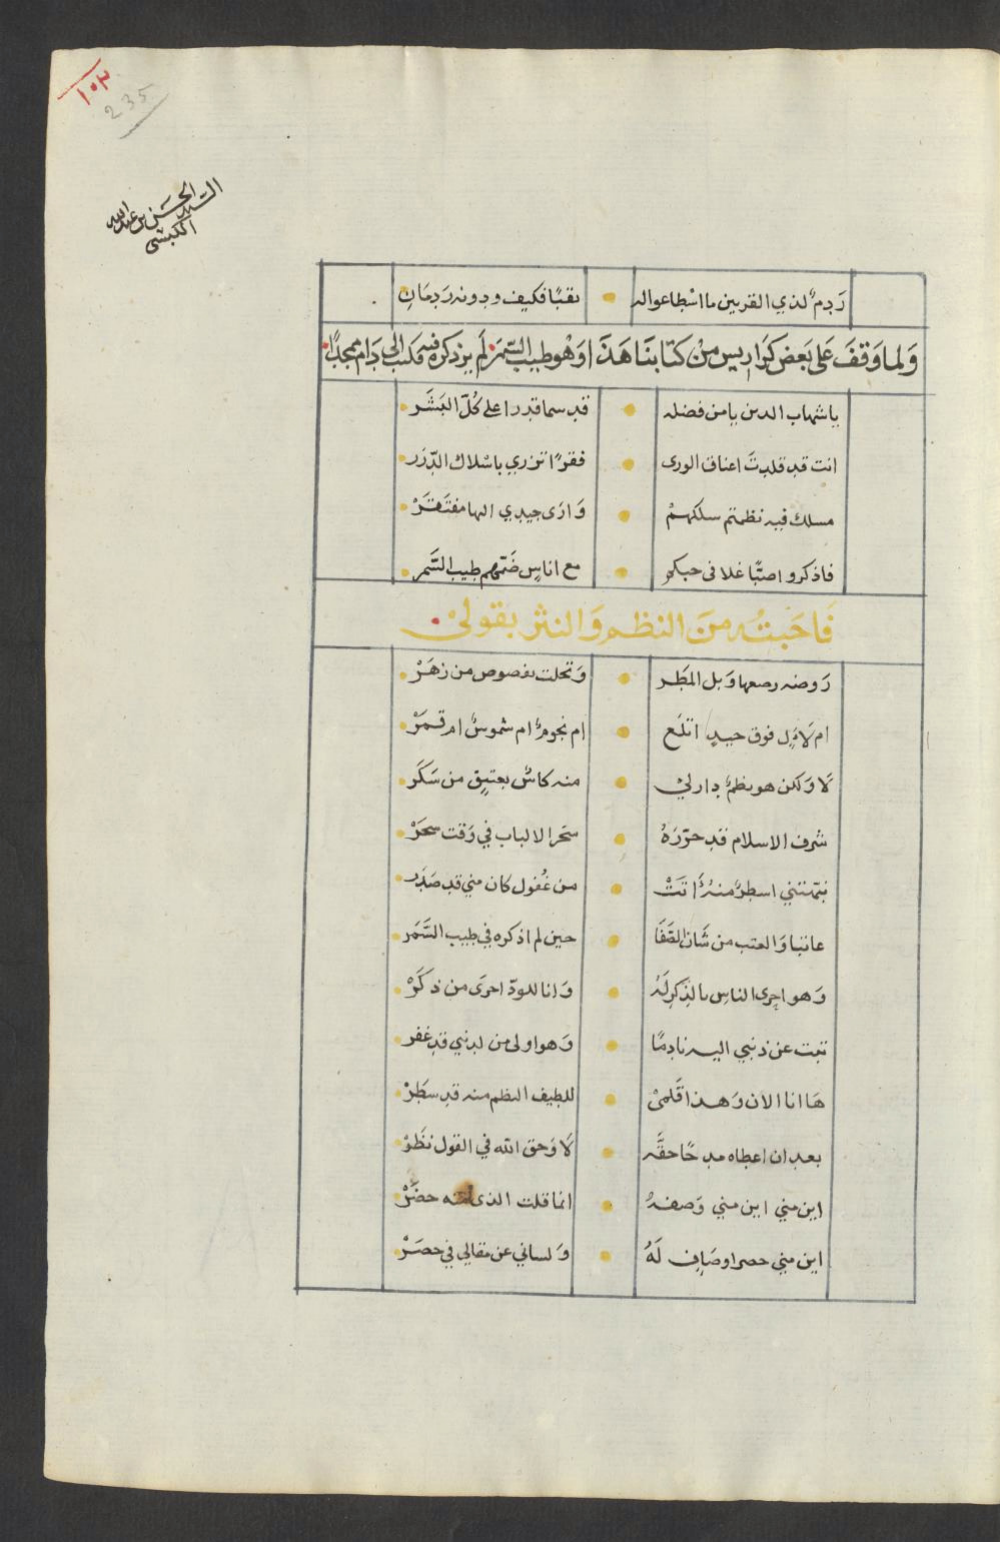 ١٠٣
235
السيد الحسن بن عبد الله
الكبسي
رَدمٌ لذي القرنين ما اسْطاعوا له نقبًا فكيف ودونه رَدمَانِ
وَلما وَقفَ عَلى بَعض كَرَاريس مِنْ كتابنَا هَذَا وَهُو طيب السّمَر لَم يَر ذكره فيه فكتب الي دَام مجدًا
يا شهاب الدين يا من فضله قد سما قدرا على كُلّ البَشَر
انت قد قلدتَ اعناق الورى فقرًا تزري باسْلاك الدّرَر
مسلك فيه نظمتم سلكهمْ وَارَى جيدي اليها مفتَقَرْ
فاذكروا صبًّا غلا في حبكم مع اناسٍ ضَمّهم طيب السَّمر
فَاجَبتُه منَ النظم وَالنثر بقولي
رَوضه رصعها وَبل المطَر وَتحلت بفصوص من زهَرْ
ام لَاۤلٍ فوق جيدٍ اتلَع ام نجومٌ ام شموسٌ ام قمَرْ
لَا وَلكن هو نظمٌ دار لي منه كاسٌ بعتيقٍ من سَكَر
شرف الاسلام قد حرّرَهُ سَحر الالباب في وَقت سحَرْ
نبّهتني اسطرٌ منهُ أَتَتْ من غُفول كان مني قد صَدَر
عاتبا وَالعتب من شَان الصَّفَا حين لم اذكره في طيب السَّمَر
وَهو احرى الناس بالذِكرِ لَهُ وَانا للودّ احرَى من ذكَرْ
تبت عن ذنبي اليه نادمًا وَهو اولى من لذنبي قد غفر
هَا انا الان وَهذا قَلمىْ للطيف النظم منه قد سطَرْ
بعد ان اعطاه مدحًا حقَّه لَا وَحق الله في القول نظَرْ
اين مني اين مني وَصفهُ انما قلت الذى منه حضَرْ
اين مني حصر اوصَافٍ لَهُ وَلساني عن مقالي في حصَرْ